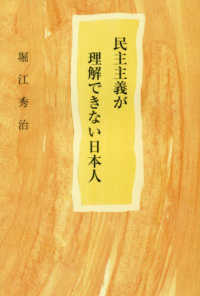 民主主義が
理解できない日本人
堀江秀治